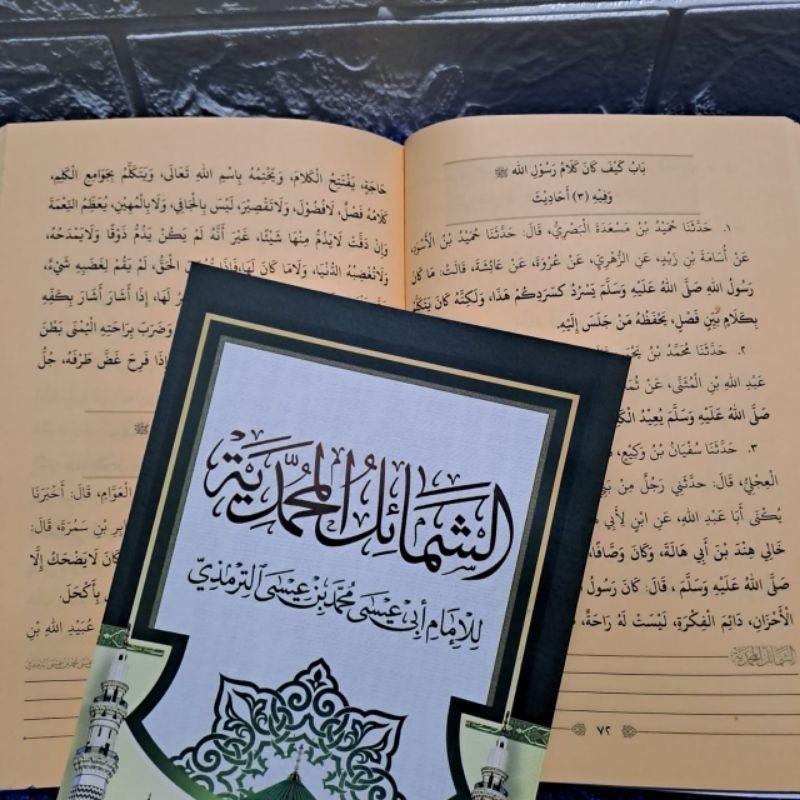 بَابُ كَيْفَ كَانَ كَلَامُ رَسُوْلِ الله ﷺ
وَفِيْهِ (٣) أَحَادِيْثَ
١. حَدَّثَنَا حُمَيْدُ بْنُ مَسْعَدَةَ الْبَصْرِيُّ، قَالَ: حَدَّثَنَا حُمَيْدُ بْنُ الْأَسْوَدِ،
عَنْ أُسَامَةَ بْنِ زَيْدٍ، عَنِ الزُّهْرِيِّ، عَنْ عُرْوَةَ، عَنْ عَائِشَةَ، قَالَتْ: مَا كَانَ
رَسُوْلُ اللهِ صَلَّى اللهُ عَلَيْهِ وَسَلَّمَ يَسْرُدُ كَسَرْدِكُمْ هَذَا، وَلَكِنَّهُ كَانَ يَتَكَلَّمُ
بِكَلَامٍ بَيِّنٍ فَصْلٍ، يَحْفَظُهُ مَنْ جَلَسَ إِلَيْهِ.
٢. حَدَّثَنَا مُحَمَّدُ بْنُ
عَبْدِ اللهِ بْنِ الْمُثَنَّى، عَنْ
صَلَّى اللهُ عَلَيْهِ وَسَلَّمَ يُعِيْدُ
٣. حَدَّثَنَا سُفْيَانُ بْنُ وَكِيْعٍ،
الْعِجْلِيُّ، قَالَ: حَدَّثَنِي رَجُلٌ مِنْ
يُكْنَى أَبَا عَبْدِ اللهِ، عَنِ ابْنٍ لِأَبِي
خَالِي هِنْدَ بْنَ أَبِي هَالَةَ، وَكَانَ وَصَّافًا،
صَلَّى اللهُ عَلَيْهِ وَسَلَّمَ ، قَالَ: كَانَ رَسُوْلُ
الْأَحْزَانِ، دَائِمَ الْفِكْرَةِ، لَيْسَتْ لَهُ رَاحَةٌ،
الشمائل المحمدية
٧٢
حَاجَةٍ، يَفْتَتِحُ الْكَلَامَ، وَيَخْتِمُهُ بِاسْمِ اللهِ تَعَالَى، وَيَتَكَلَّمُ بِجَوَامِعِ الْكَلِمِ،
كَلَامُهُ فَصْلٌ، لَافُضُوْلَ، وَلَاتَقْصِيْرَ، لَيْسَ بِالْجَافِي، وَلَابِالْمُهِيْنِ، يُعَظِّمُ النِّعْمَةَ
وَإِنْ دَقَّتْ لَايَذُمُّ مِنْهَا شَيْئًا، غَيْرَ أَنَّهُ لَمْ يَكُنْ يَذُمُّ ذَوَّاقًا وَلَايَمْدَحُهُ،
وَلَاتُغْضِبُهُ الدُّنْيَا، وَلَامَا كَانَ لَهَا، فَإِذَا الْحَقُّ، لَمْ يَقُمْ لِغَضَبِهِ شَيْءٌ،
لَهَا، إِذَا أَشَارَ أَشَارَ بِكَفِّهِ
وَضَرَبَ بِرَاحَتِهِ الْيُمْنَى بَطْنَ
إِذَا فَرِحَ غَضَّ طَرْفَهُ، جُلُّ
ﷺ
الْعَوَّامِ، قَالَ: أَخْبَرَنَا
بْنِ سَمُرَةَ، قَالَ:
كَانَ لَايَضْحَكُ إِلَّا
بِأَكْحَلَ.
عُبَيْدِ اللهِ بْنِ
الشَّمَائِلُ الْمُحَمَّدِيَّة
لِلْإِمَامِ أَبِي عِيْسَى مُحَمَّد بْنِ عِيْسَى التِّرْمِذِيّ